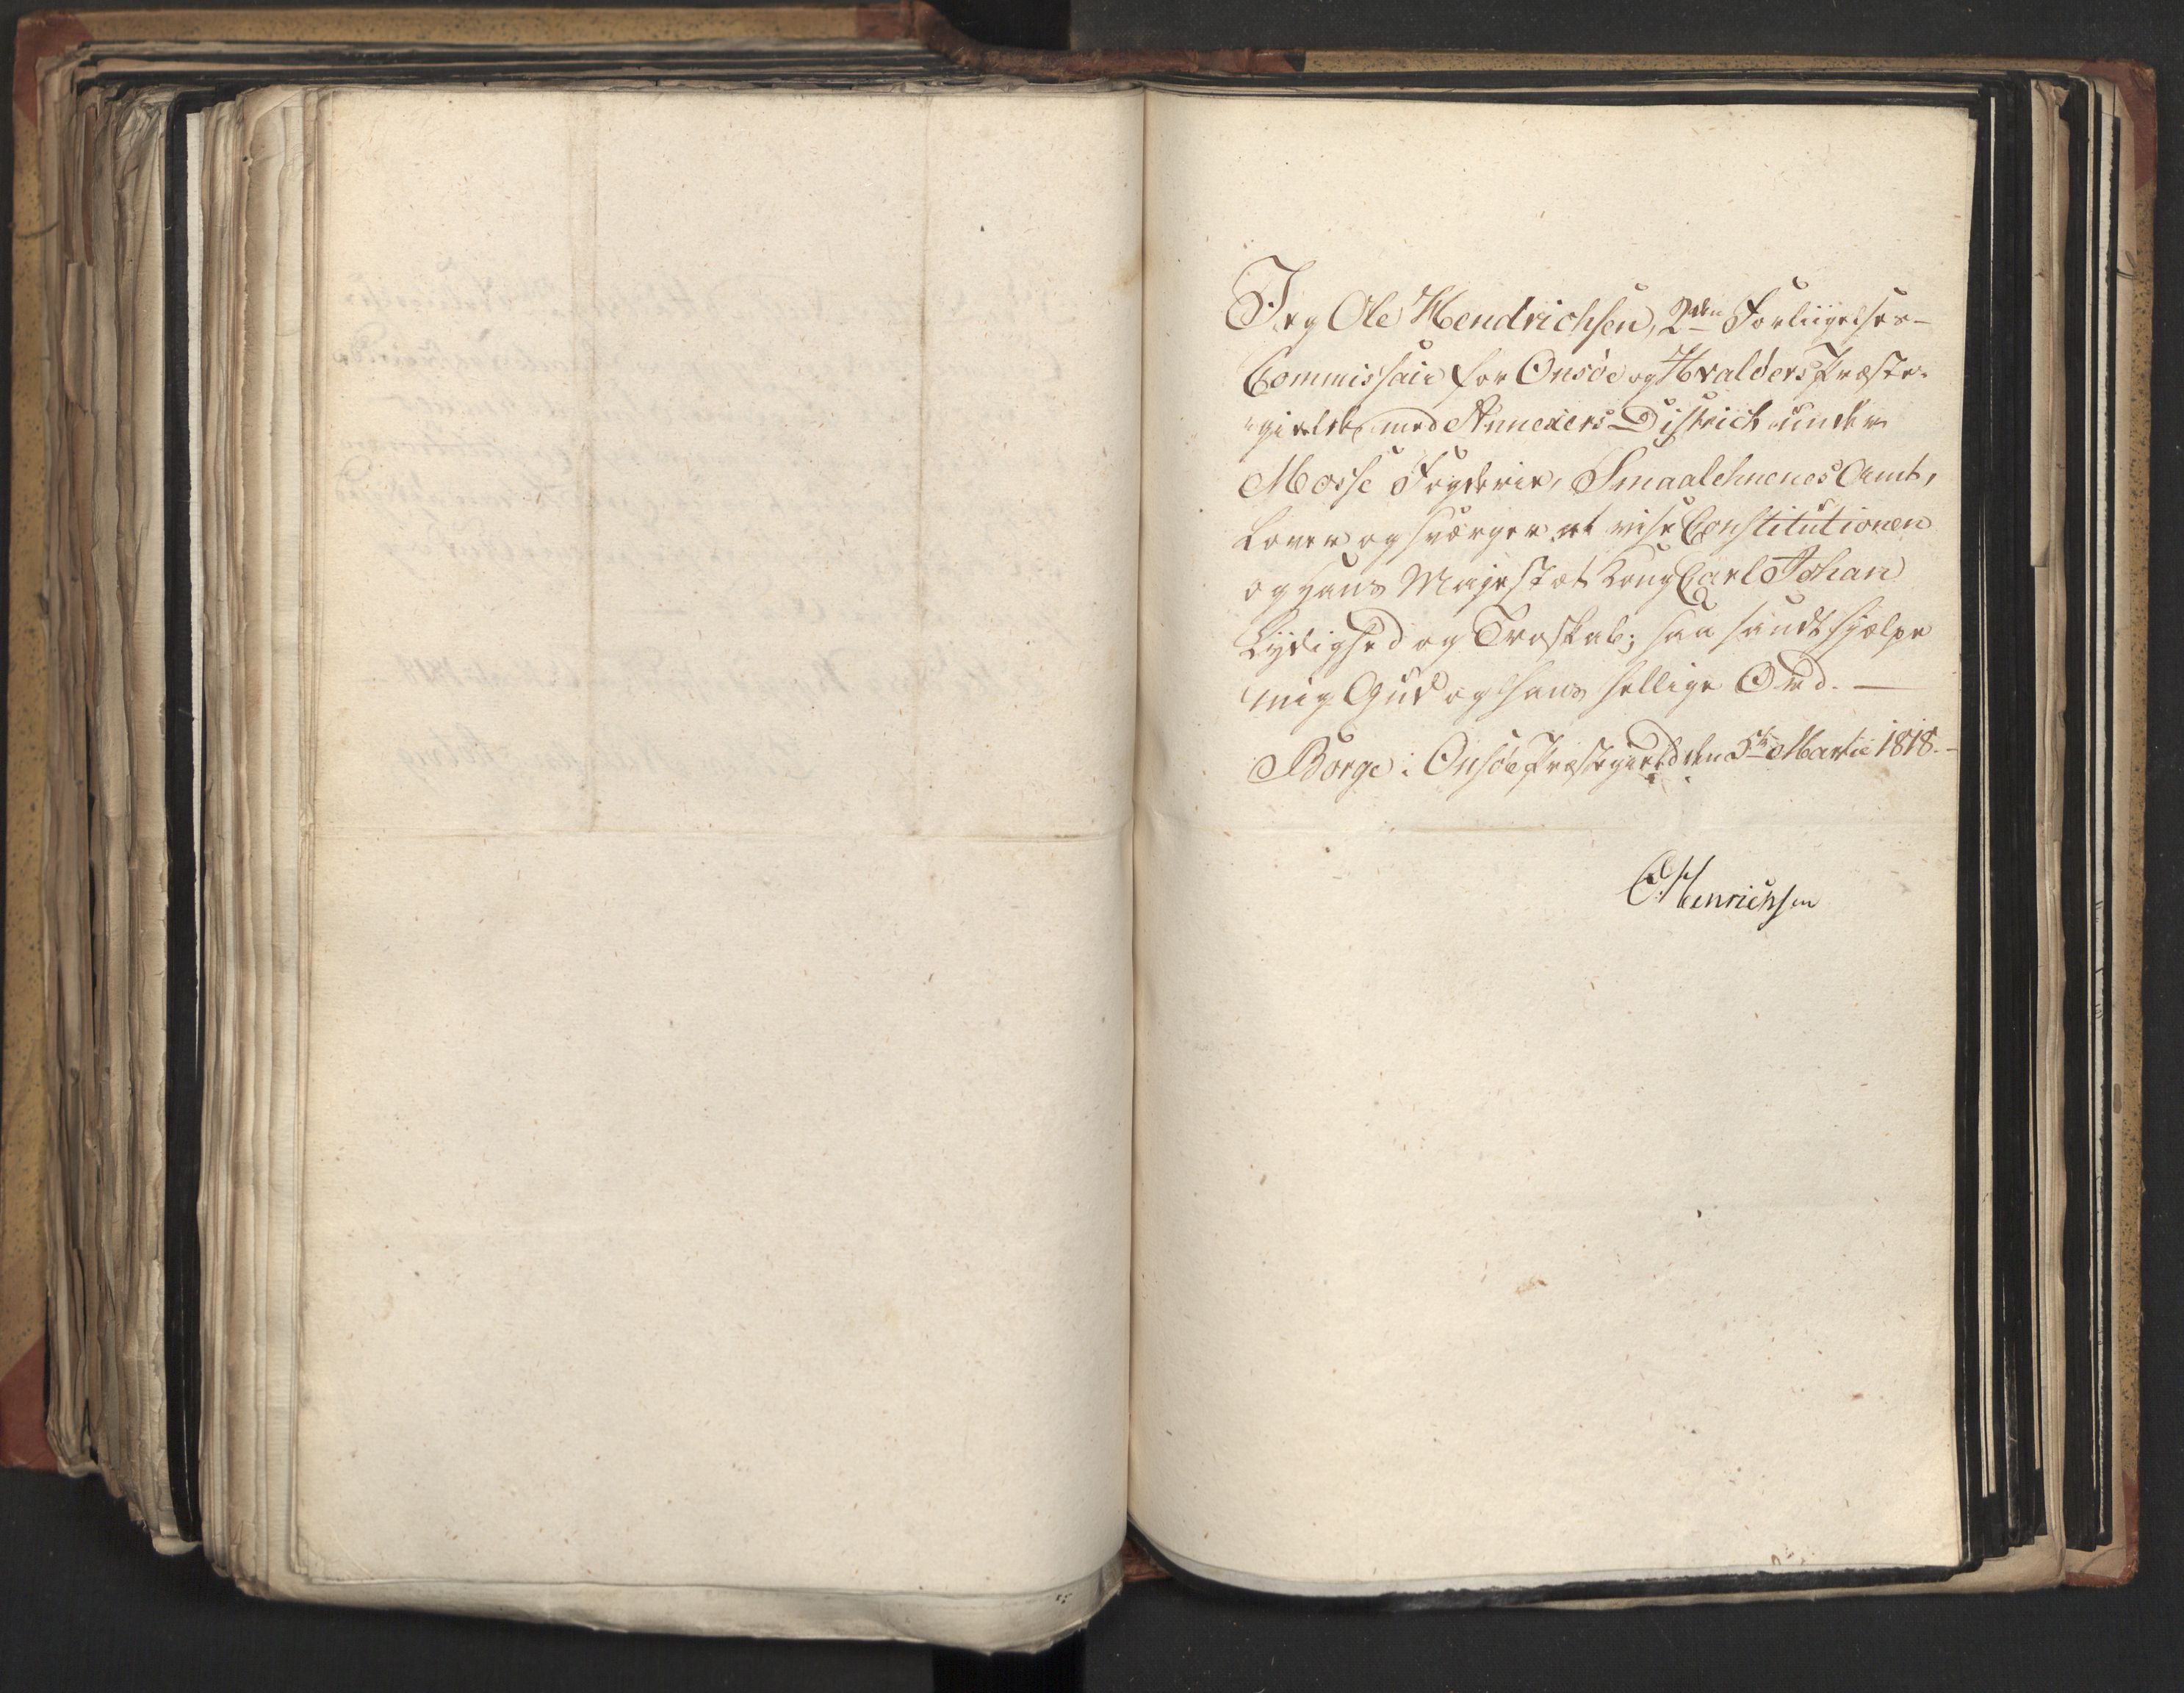 Jeg Ole Hendrichsen, 2den Forliigelses-
Commissair for Onsöe og Hvalöers Præste-
gield med Annexers District under
Mosse Fogderie, Smaalehnenes Amt,
Lover og sværger at vise Constitutionen
og Hans Majestæt Kong Carl Johan
Lydighed og Troskab; saa sandt hjelpe
mig Gud og hans hellige Ord. —
Borge i Onsöe Præstegield den 5te Martii 1818. -
O. Henrichsen